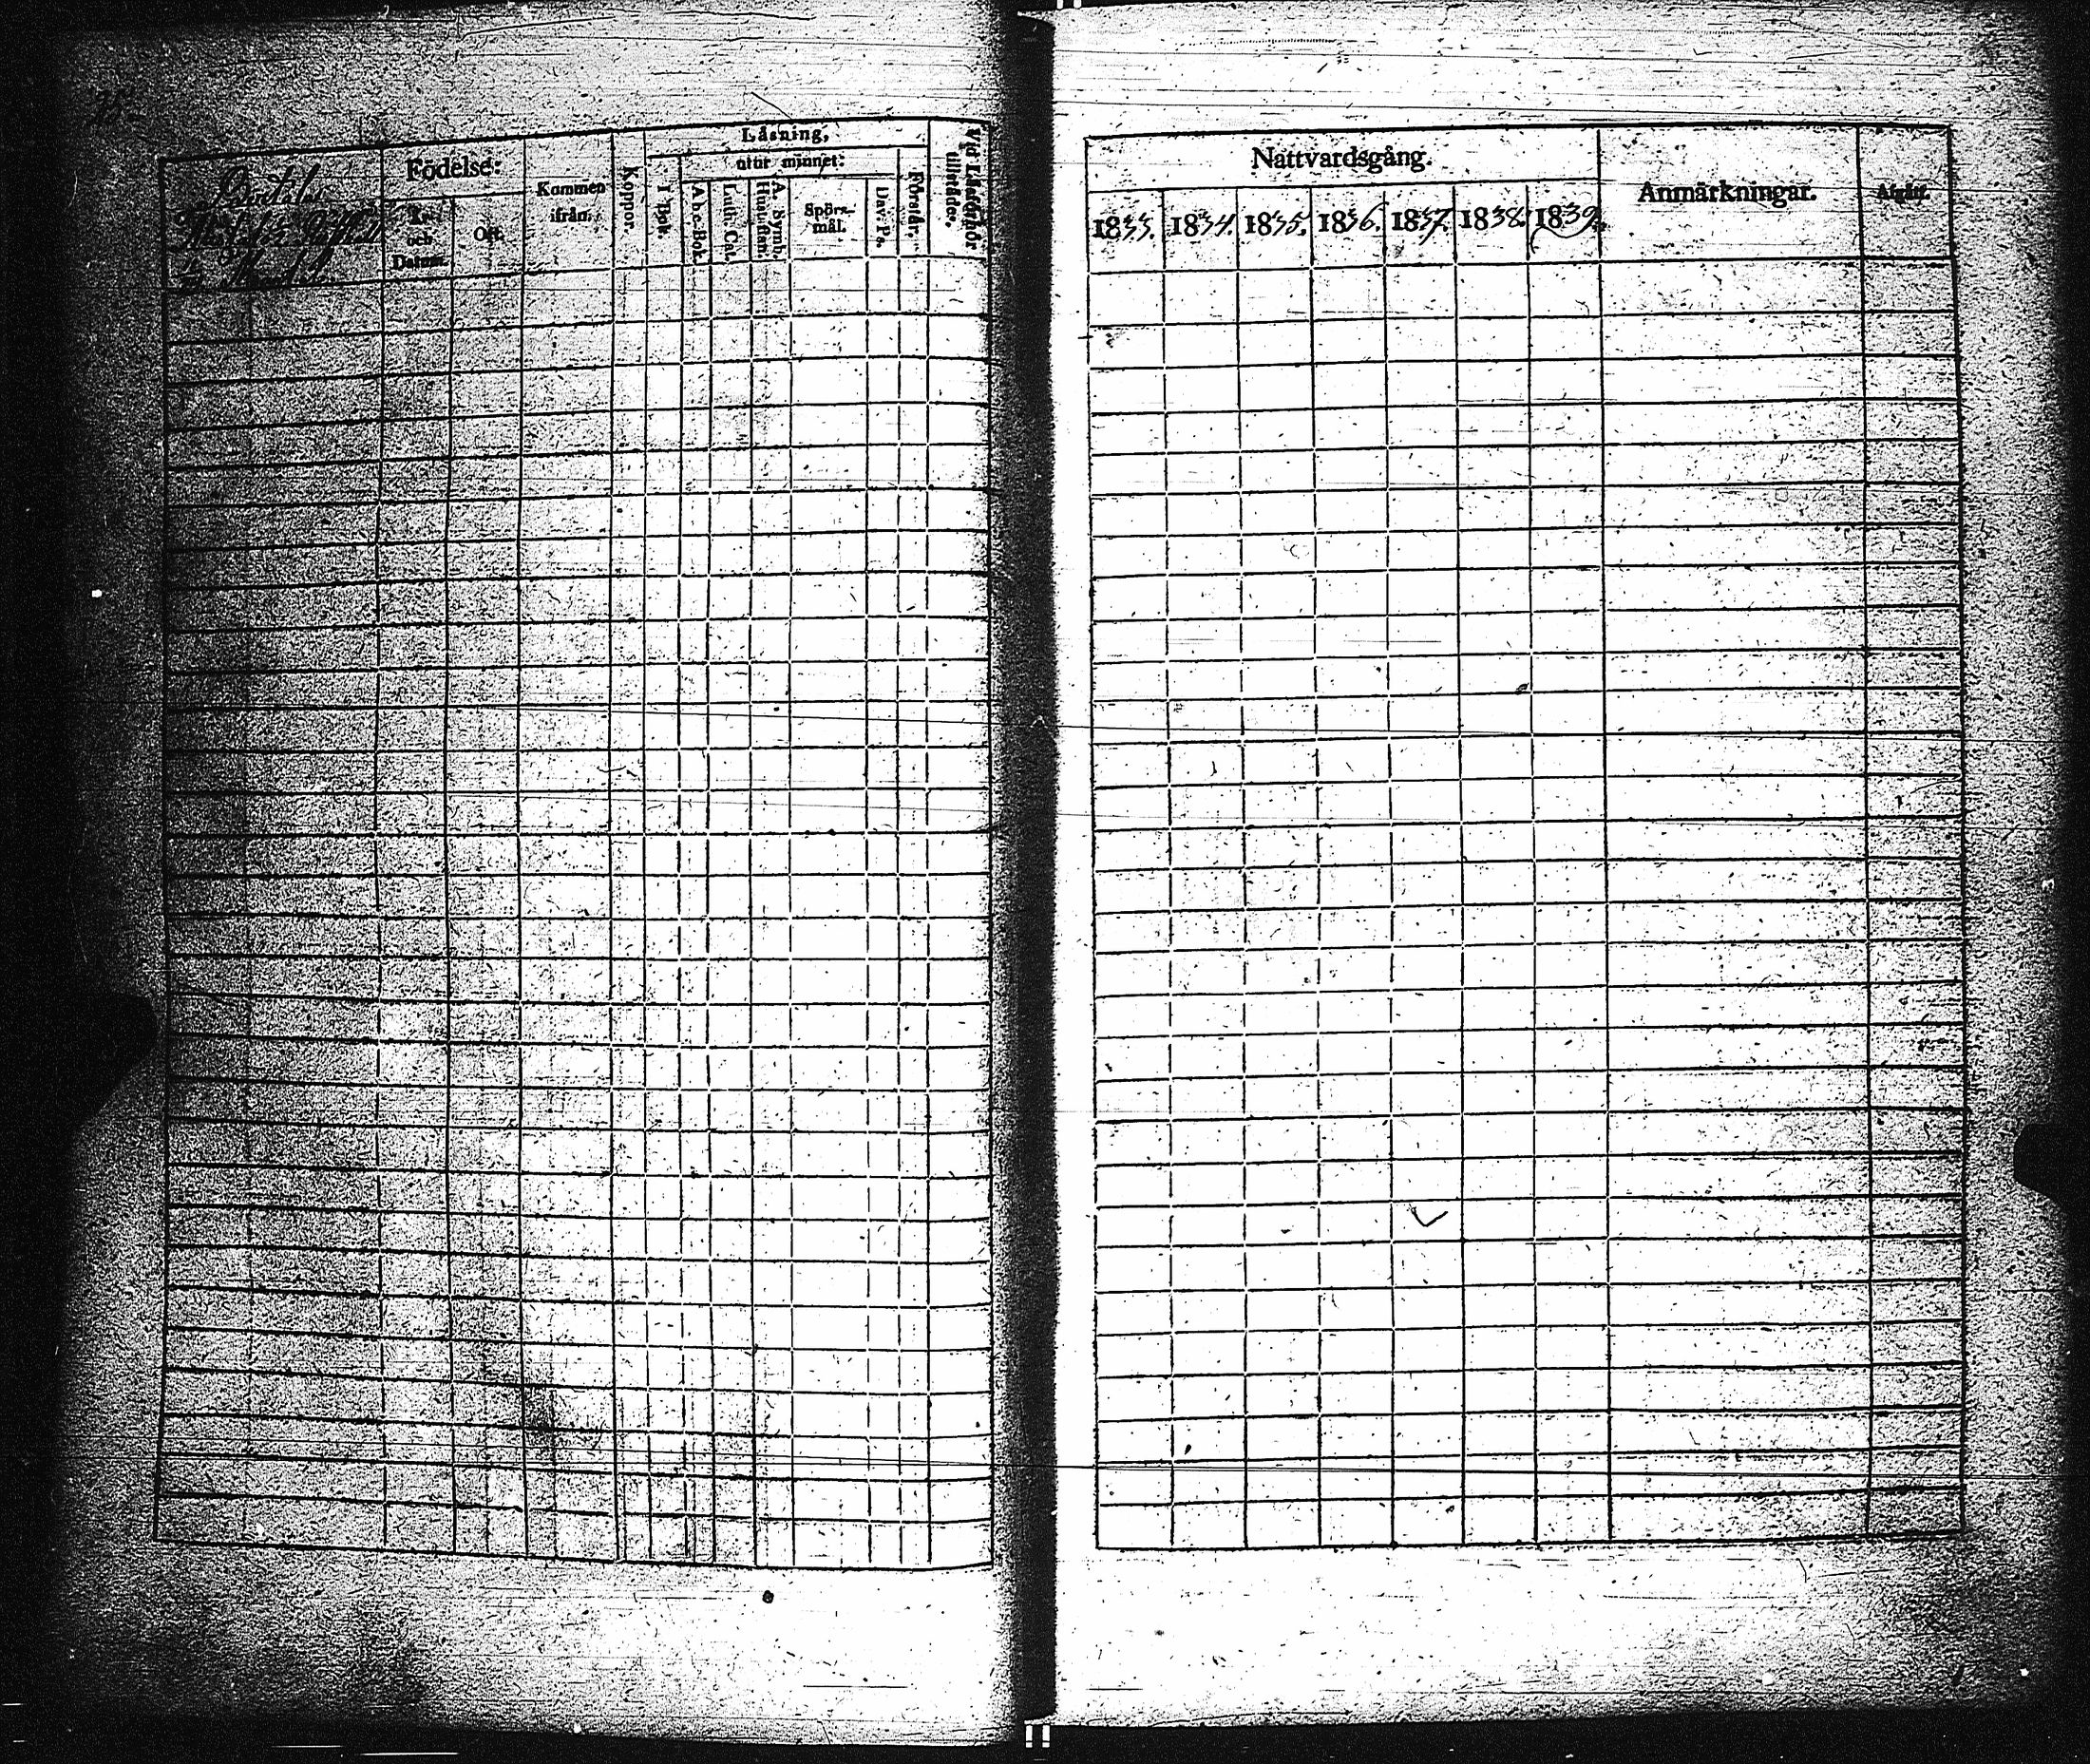 Födelse:
År
och
Datum.
Ort.
Kommen
ifrån.
Koppor.
Läsning,
utur minnet:
I bok.
A b c-Bok.
Luth. Cat.
A. Symb.
Hustaflan.
Spörs-
mål.
Dav. Ps.
Förstår.
Vid Läseförhör
tillstädes.
Nattvardsgång.
1833. 1834. 1835. 1836. 1837. 1838. 1839.
Anmärkningar.
Afgått.